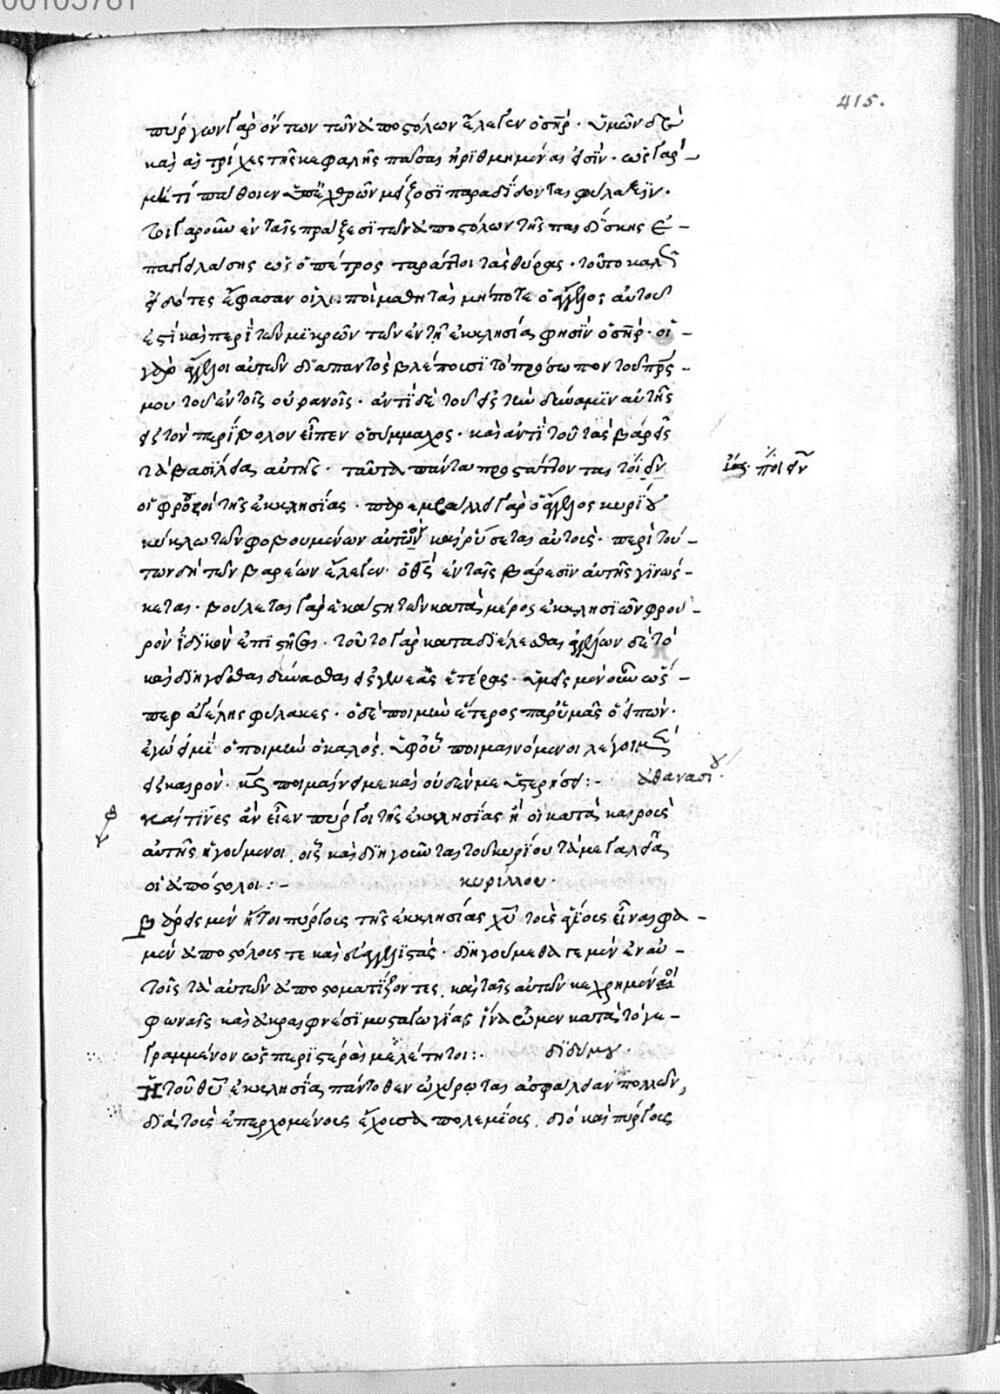 415.
πύργων γὰρ ὄντων τῶν ἀποστόλων ἔλεγεν ὁ σηρ· ὑμῶν δὲ
καὶ αἱ τρίχες τῆς κεφαλῆς πᾶσαι ἠριθμημέναι εἰσΐν· ὡς γὰρ
μή τι πάθοιεν ἐχθρῶν παραδΐδονται φύλαξϊν·
τοιγαροῦν ἐν ταῖς πράξεσϊ τῶν ἀποστόλων τῆς παιδΐσκης
ὡς ὁ πέτρος παρὰ τὰς θύρας· τοῦτο καλῶς
εἰδότες ἔφασαν οἱ λοιποὶ μαθηταὶ μήποτε ὁ ἄγγελος αὐτοῦ
ἐστί καὶ περὶ τῶν μϊκρῶν τῶν ἐν τῇ ἐκκλησία φησΐν ὁ σηρ· οἱ
γὰρ ἄγγελοι αὐτῶν δϊαπαντὸς βλέπουσϊ τὸ πρόσωπον τοῦ πρς
μου τοῦ ἐν τοῖς οὐρανοῖς· ἀντὶ δὲ τοῦ εἰς τὴν δύναμϊν αὐτῆς
εἰς τὸν περΐβολον εἶπεν ὁ σύμμαχος· καὶ ἀντὶ τοῦ τὰς βάρεις
τὰ βασΐλεια αὐτῆς· ταῦτα πάντα προστάττονται
οἱ φρουροὶ τῆς ἐκκλησΐας· παρεμβαλεῖ γὰρ ὁ ἄγγελος κυρΐου
κύκλω τῶν φοβουμένων αὐτὸν καὶ ῥύσεται αὐτούς· περὶ τού-
των δὴ τῶν βαρέων ἔλεγεν· ὁ θς ἐν ταῖς βάρεσϊν αὐτῆς γϊνώσ-
κεται· βούλεται γὰρ ἑκάστη τῶν κατὰ μέρος ἐκκλησϊῶν φρου-
ρὸν ἰδϊκὸν ἐπϊστῆσαι· τοῦτο γὰρ καταδϊελέσθαι σε τὸ
καὶ δϊηγεῖσθαι δύνασθαι εἰς γενεὰς ἑτέρας· ὑμεῖς μὲν οὖν ὥσ-
περ ἀγέλης φύλακες· ὁ δὲ ποιμὴν ἕτερος παρ' ὑμᾶς ὁ εἰπών·
ἐγώ εἰμϊ ὁ ποιμὴν ὁ καλός. ὑφ' οὗ ποιμαινόμενοι λέγομεν
εἰς καιρόν. κς ποιμαίνει με καὶ οὐδέν με ὑστερήσει:- ἀθανασίου·
καὶ τΐνες ἂν εἶεν πύργοι τῆς ἐκκλησΐας ἢ οἱ κατὰ καιροὺς
αὐτῆς ἡγούμενοι. οἳ καὶ δϊηγοῦνται τοῦ κυρίου τὰ μεγαλεῖα
οἱ ἀπόστολοι:- κυρίλλου·
Βάρεις μὲν ἤτοι πύργους τῆς ἐκκλησΐας χυ τοὺς ἁγΐους εἶναι φα-
μὲν ἀποστόλους τε καὶ εὐαγγελϊστάς· δϊηγούμεθά γε μὴν ἐν αὐ-
τοῖς τὰ αὐτῶν ἀποστοματΐζοντες. καὶ ταῖς αὐτῶν κεχρημένοι
φωναῖς καὶ ἀκραιφνέσϊ μυσταγωγΐαις ἵνα ὦμεν κατὰ τὸ γε-
γραμμένον ὡς περϊστεραὶ μελετητοι:· δϊδύμου·
Ἡ τοῦ θυ ἐκκλησΐα πάντοθεν ὠχύρωται ἀσφάλειαν πολλὴν
δϊὰ τοὺς ἐπερχομένους ἔχουσα πολεμΐους. διὸ καὶ πύργους